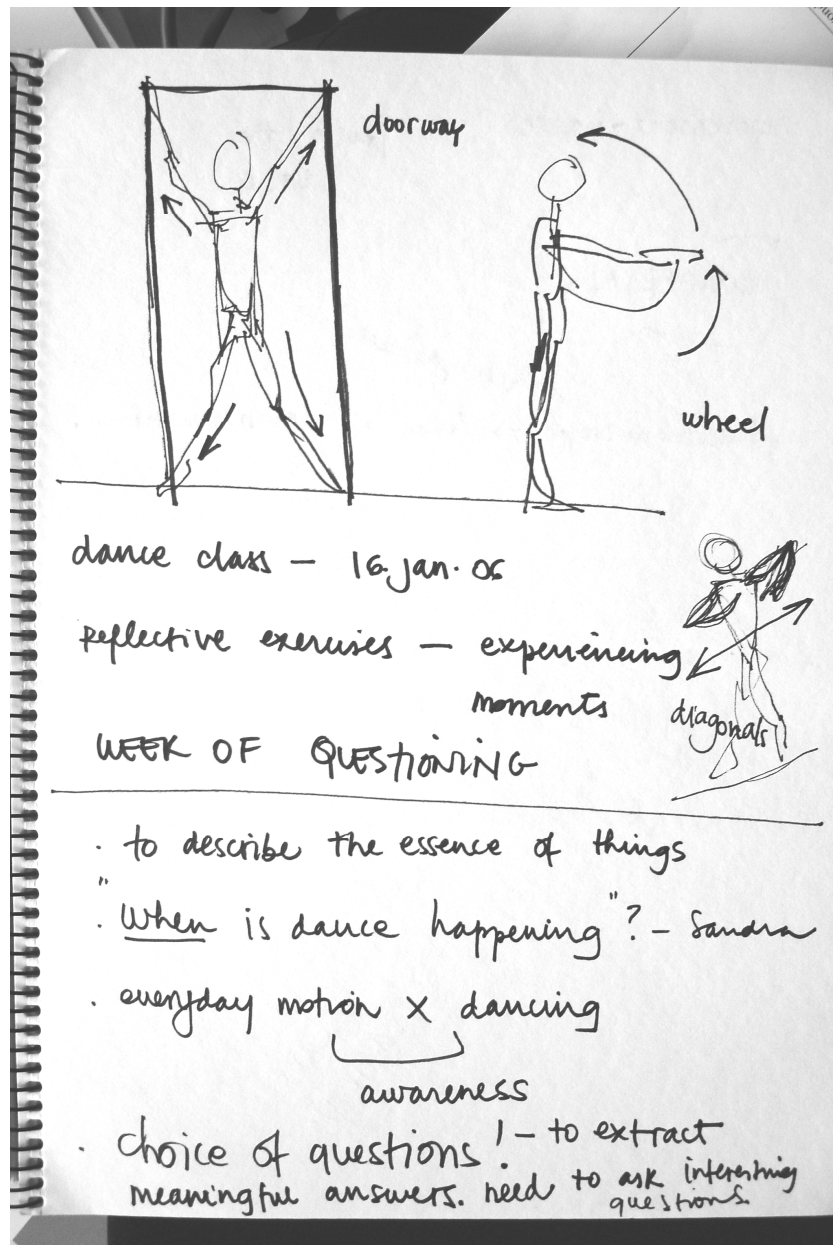 doorway
wheel
dance class – 16. jan. 06
reflective exercises – experiencing
moments
diagonals
WEEK OF QUESTIONING
· to describe the essence of things
· "When is dance happening"? – Sandra
· everyday motion x dancing
awareness
· choice of questions! – to extract
meaningful answers. need to ask interesting
questions.